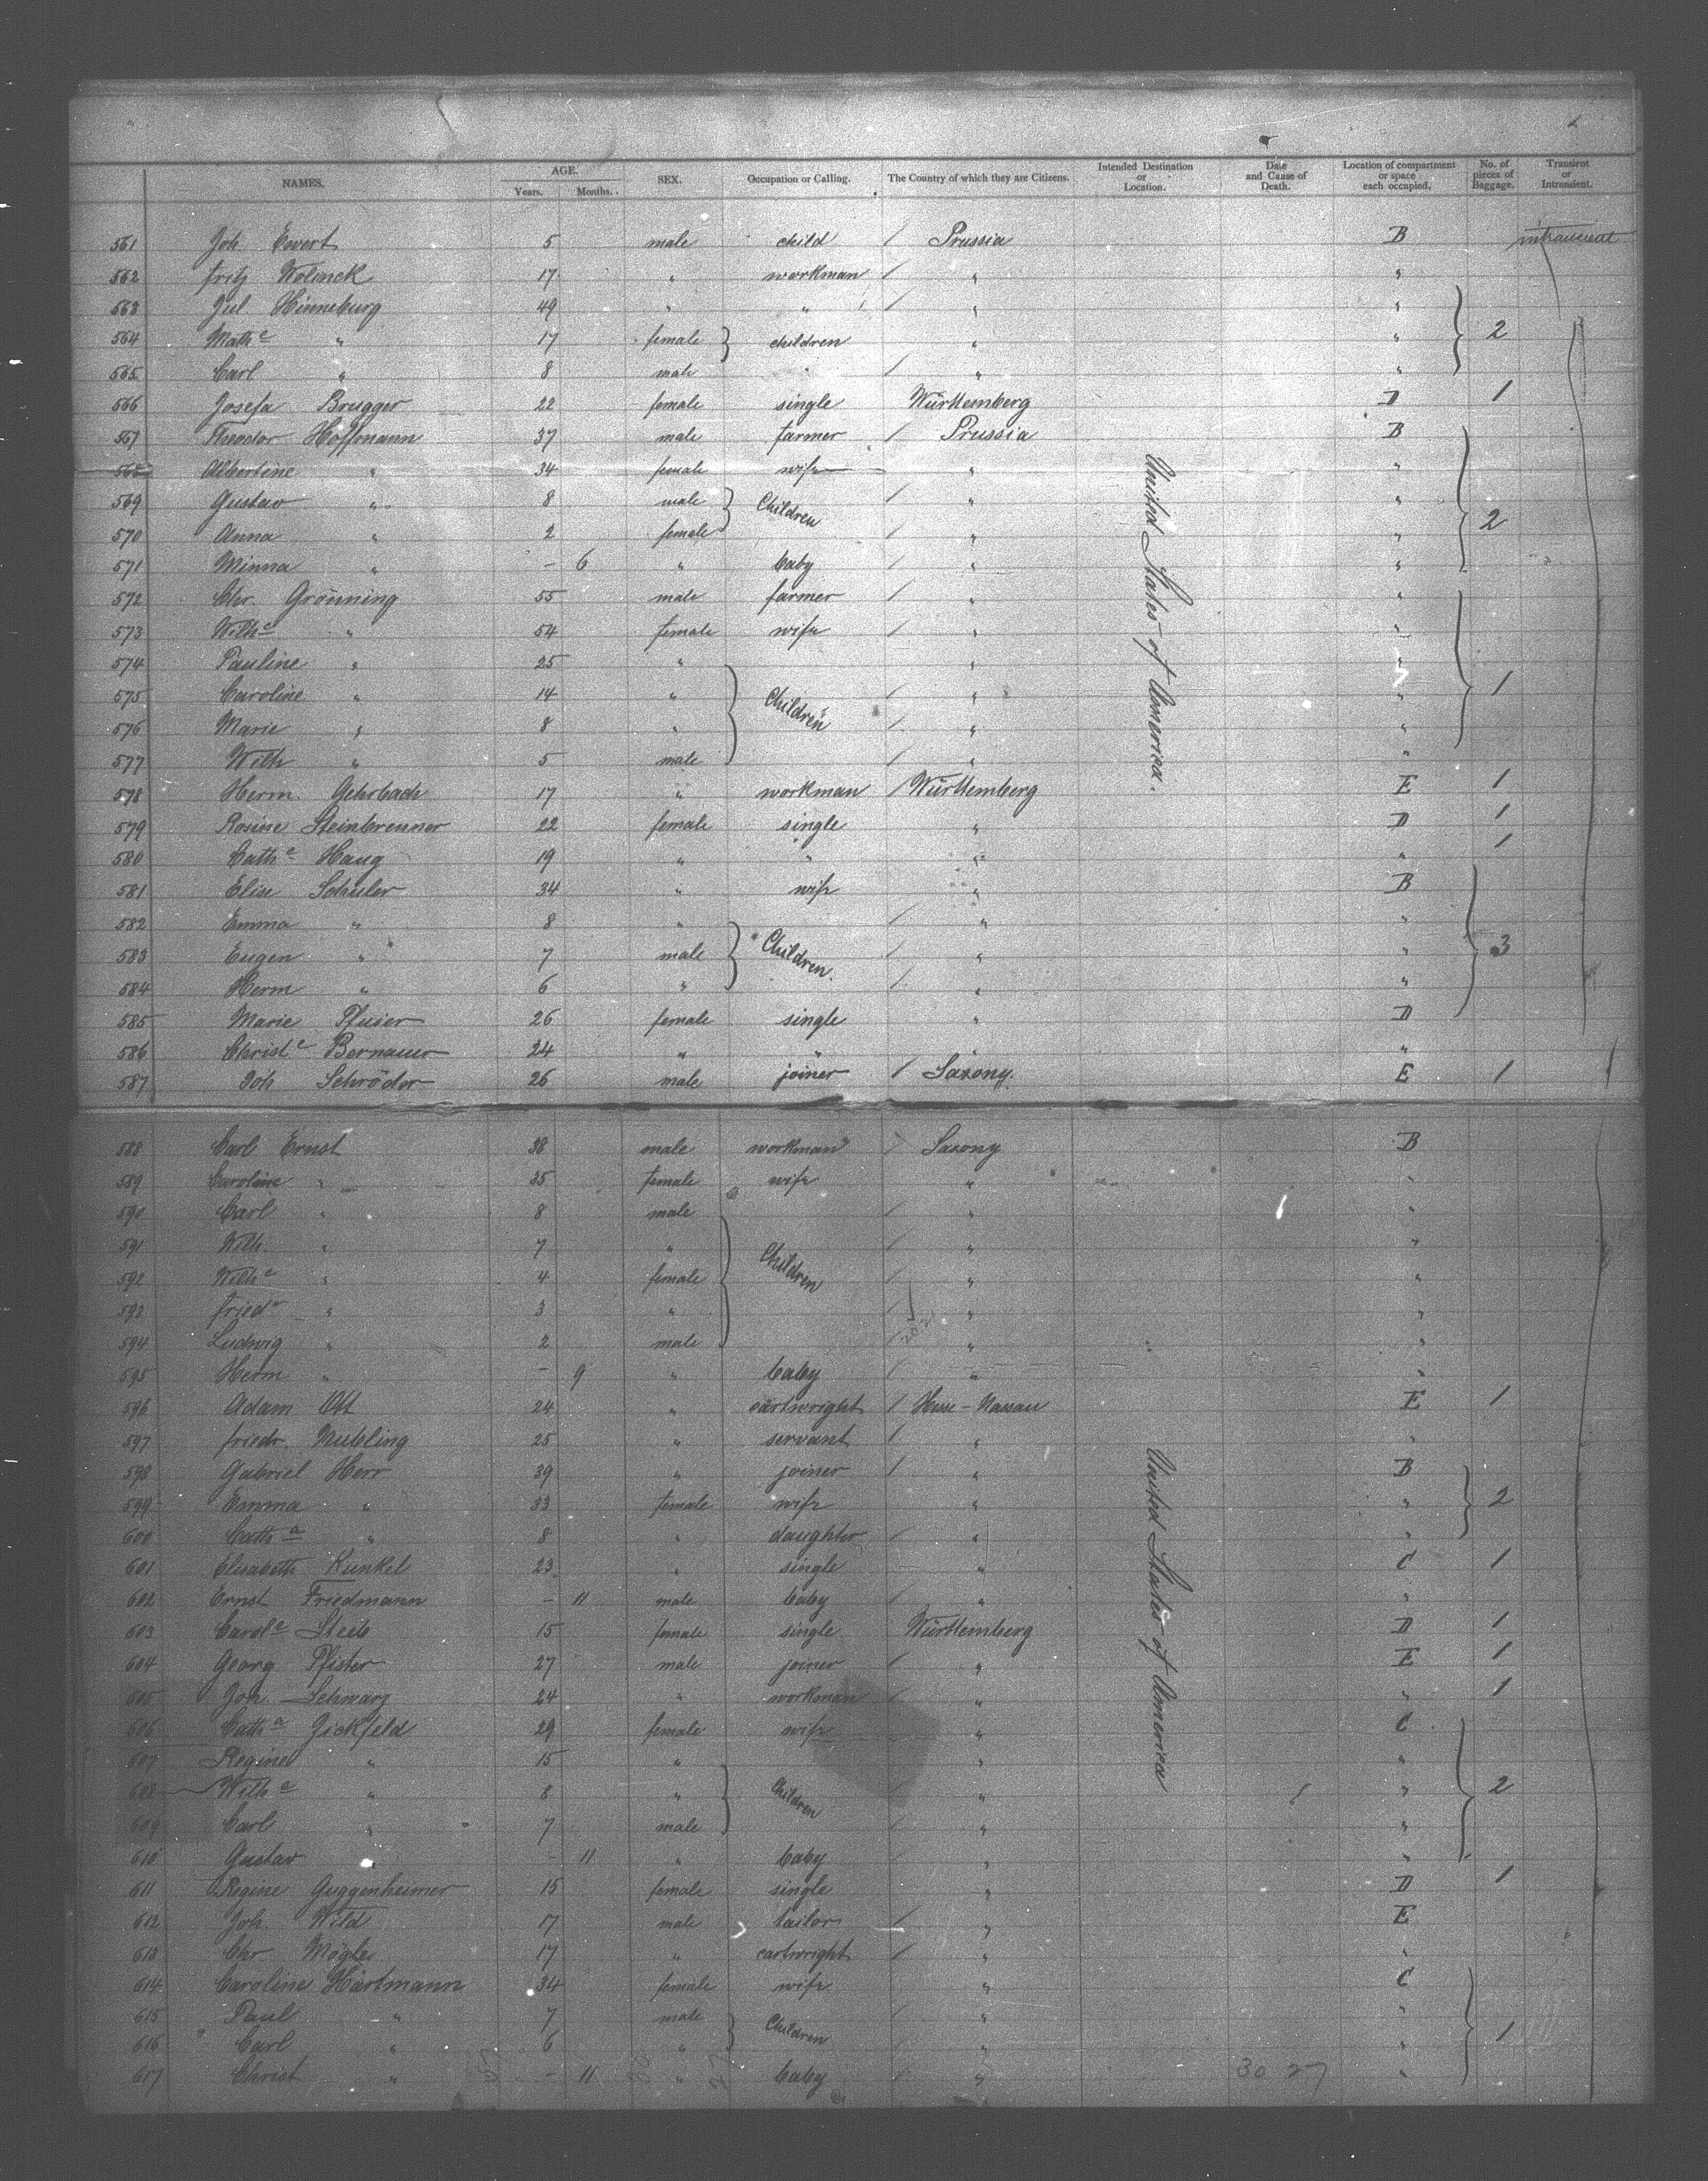 NAMES. AGE. Years. Months. SEX. Occupation or Calling. The Country of which they are Citizens. Intended Destination or Location. Date and Cause of Death. Location of compartment or space each occupied. No. of pieces of Baggage. Transient or Intransient.
561 Joh Evert 5 male child / Prussia B intransient
562 Fritz Wolinck 17 " workman / " "
563 Jul Hinneburg 49 " " / " "
564 Mathe " 17 female children " " 2
565 Carl " 8 male / " "
566 Josefa Brugger 22 female single Württemberg D 1
567 Theodor Hoffmann 37 male farmer / Prussia B
568 Albertine " 34 female wife " "
569 Gustav " 8 male Children / " "
570 Anna " 2 female / " " 2
571 Minna " - 6 " baby / " "
572 Chr. Grönning 55 male farmer / " "
573 Wilhe " 54 female wife / " "
574 Pauline " 25 " " "
575 Caroline " 14 " Children / " " 1
576 Marie " 8 " / " "
577 Wilh " 5 male / " "
United States of America.
578 Herm. Gehrbach 17 " workman / Württemberg E 1
579 Rosine Steinbrenner 22 female single " D 1
580 Cathe Haug 19 " " " " 1
581 Elise Schuler 34 " wife " B
582 Emma " 8 " / " "
583 Eugen " 7 male Children / " " 3
584 Herm " 6 " / " "
585 Marie Pfuier 26 female single " D
586 Christe Bernauer 24 " " " "
587 Joh Schröder 26 male joiner / Saxony E 1
588 Carl Ernst 38 male workman / Saxony B
589 Caroline " 35 female wife " "
590 Carl " 8 male / " "
591 Wilh. " 7 " Children / " "
592 Wilhe " 4 female / " "
593 Friede " 3 " / " "
594 Ludwig " 2 male / " "
595 Herm " - 9 " baby / " "
596 Adam Ott 24 " cartwright / Hesse-Nassau E 1
597 Friedr. Nubling 25 " servant / " "
598 Gabriel Herr 39 " joiner / " B
599 Emma " 33 female wife " " 2
600 Catha " 8 " daughter / " "
601 Elisabeth Kunkel 23 " single " C 1
602 Ernst Friedmann - 11 male baby / " "
603 Carole Steib 15 female single Württemberg D 1
604 Georg Pfister 27 male joiner / " E 1
605 Joh. Schwarz 24 " workman / " " 1
606 Catha Zickfeld 29 female wife " C
607 Regine " 15 " " "
608 Wilhe " 8 " Children / " " 2
609 Carl " 7 male / " "
610 Gustav " - 11 " baby / " "
United States of America
611 Regine Guggenheimer 15 female single " D 1
612 Joh. Wild 17 male tailor / " E
613 Chr Mögle 17 " cartwright / " "
614 Caroline Hartmann 34 female wife " C
615 Paul " 7 male Children / " "
616 Carl " 6 " / " " 1
617 Christ " - 11 " baby / " 30 27 "